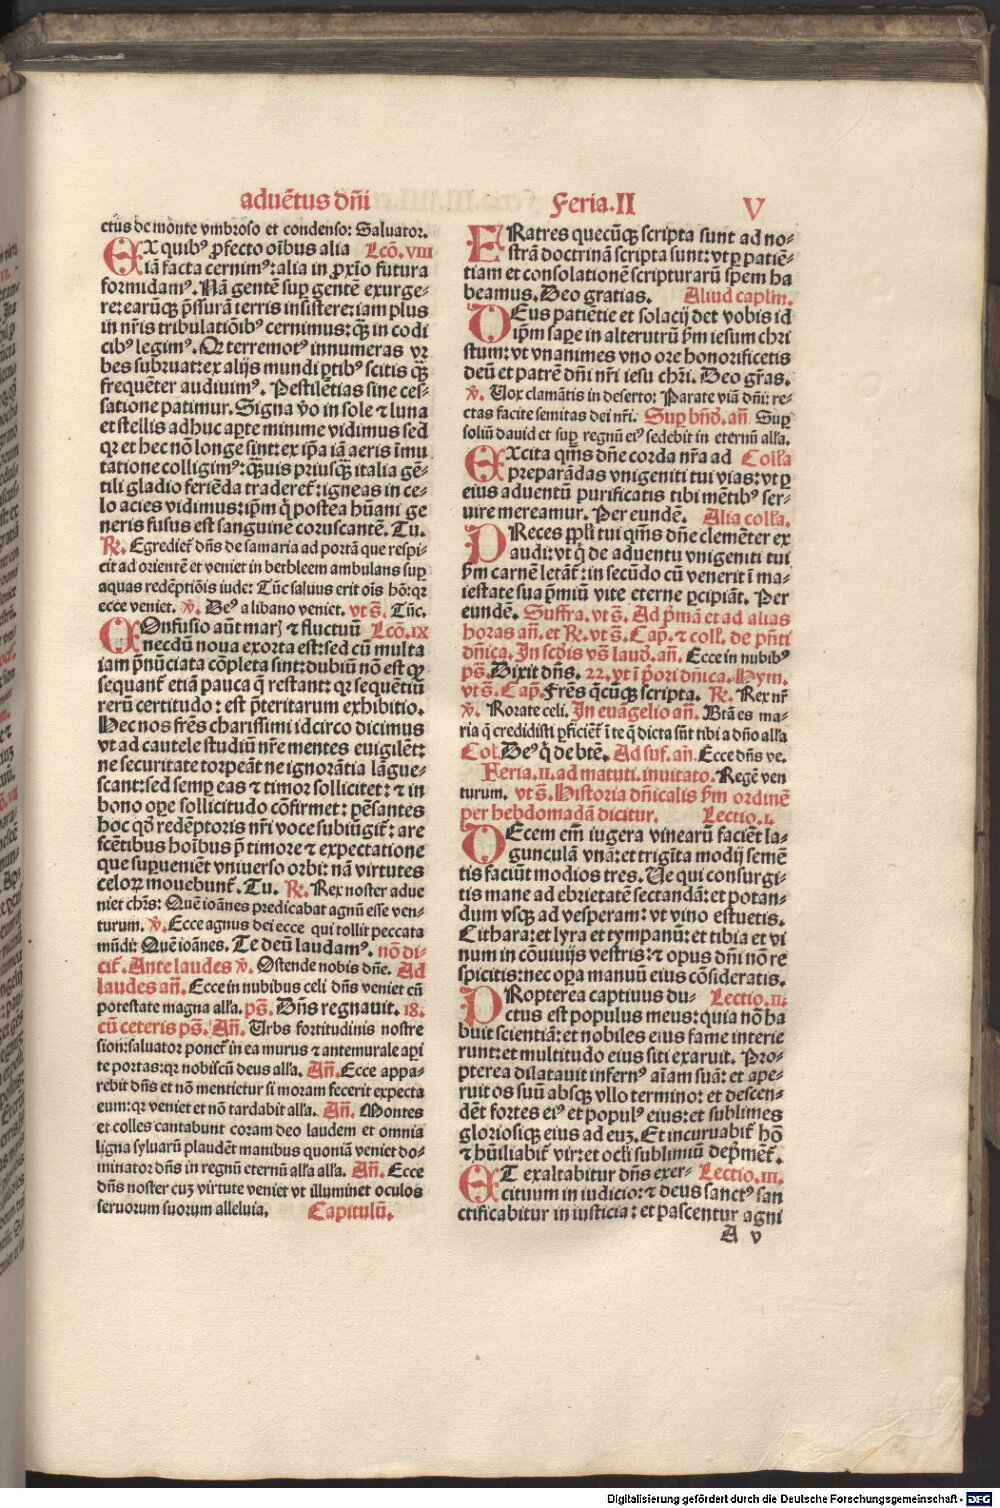 aduẽtus dñi
Feria.II
V
ctus de monte vmbroso et condenso: Saluator.
EX quibꝰ ꝓfecto oĩbus alia Lcõ.VIII
iã facta cernimꝰ: alia in ꝓxĩo futura
formidamꝰ. Nã gentẽ suꝑ gentẽ exurge-
re: earũqꝫ p̃ssurã terris insistere: iam plus
in nr̃is tribulatiõibꝰ cernimus: qᷓꝫ in codi
cibꝰ legimꝰ. Qꝛ terremotꝰ innumeras vr
bes subruat: ex alijs mundi ꝑtibꝰ scitis qᷓꝫ
frequẽter audiuimꝰ. Pestilẽtias sine ces-
satione patimur. Signa ṽo in sole ⁊ luna
et stellis adhuc aꝑte minime vidimus sed
qꝛ et hec nõ longe sint: ex ip̃a iã aeris ĩmu
tatione colligimꝰ: qᷓꝫuis priusqᷓꝫ italia gẽ-
tili gladio feriẽda traderet᷑: igneas in ce-
lo acies vidimus: ip̃m q̃ postea hũani ge
neris fusus est sanguinẽ coruscantẽ. Tu.
℟. Egrediet᷑ dñs de samaria ad portã que respi-
cit ad orientẽ et veniet in bethleem ambulans suꝑ
aquas redẽptiõis iude: Tũc saluus erit oĩs hõ: qꝛ
ecce veniet. ℣. Deꝰ a libano veniet. vt s̃. Tũc.
COnfusio aũt marꝭ ⁊ fluctuũ Lcõ.IX
necdũ noua exorta est: sed cũ multa
iam p̃nũciata cõpleta sint: dubiũ nõ est qꝫ
sequant᷑ etiã pauca q̃ restant: qꝛ sequẽtiũ
rerũ certitudo: est p̃teritarum exhibitio.
Hec nos fr̃es charissimi idcirco dicimus
vt ad cautele studiũ nr̃e mentes euigilẽt:
ne securitate torpeãt ne ignorãtia lãgue-
scant: sed semꝑ eas ⁊ timor sollicitet: ⁊ in
bono oꝑe sollicitudo cõfirmet: pẽsantes
hoc qď redẽptoris nr̃i voce subiũgit᷑: are
scẽtibus hoĩbus p̃ timore ⁊ expectatione
que suꝑueniẽt vniuerso orbi: nã virtutes
celoꝝ mouebunt᷑. Tu. ℟. Rex noster adue
niet chr̃s: Quẽ ioãnes predicabat agnũ esse ven-
turum. ℣. Ecce agnus dei ecce qui tollit peccata
mũdi: Quẽ ioãnes. Te deũ laudamꝰ. nõ di-
cit᷑. Ante laudes ℣. Ostende nobis dñe. Ad
laudes añ. Ecce in nubibus celi dñs veniet cũ
potestate magna alla. ps̃. Dñs regnauit. 18.
cũ ceteris ps̃. Añ. Urbs fortitudinis nostre
sion: saluator ponet᷑ in ea murus ⁊ antemurale aꝑi
te portas: qꝛ nobiscũ deus alla. Añ. Ecce appa-
rebit dñs et nõ mentietur si moram fecerit expecta
eum: qꝛ veniet et nõ tardabit alla. Añ. Montes
et colles cantabunt coram deo laudem et omnia
ligna syluarũ plaudẽt manibus quoniã veniet do-
minator dñs in regnũ eternũ alla alla. Añ. Ecce
dñs noster cuꝫ virtute veniet vt illuminet oculos
seruorum suorum alleluia. Capitulũ.
FRatres quecũqꝫ scripta sunt ad no-
strã doctrinã scripta sunt: vt ꝑ patiẽ-
tiam et consolationẽ scripturarũ spem ha
beamus. Deo gratias. Aliud caplm̃.
DEus patiẽtie et solacij det vobis id
ip̃m saꝑe in alterutrũ ẜm iesum chri
stum: vt vnanimes vno ore honorificetis
deũ et patrẽ dñi nr̃i iesu chr̃i. Deo gr̃as.
℣. Uox clamãtis in deserto: Parate viã dñi: re-
ctas facite semitas dei nr̃i. Suꝑ bñď. añ Suꝑ
soliũ dauid et suꝑ regnũ eiꝰ sedebit in eternũ alla.
EXcita qm̃s dñe corda nr̃a ad Colla
preparãdas vnigeniti tui vias: vt ꝑ
eius aduentũ purificatis tibi mẽtibꝰ ser-
uire mereamur. Per eundẽ. Alia colla.
PReces ppl̃i tui qm̃s dñe clemẽter ex
audi: vt q̃ de aduentu vnigeniti tui
ẜm carnẽ letãt᷑: in secũdo cũ venerit ĩ ma-
iestate sua p̃miũ vite eterne ꝑcipiãt. Per
eundẽ. Suffra. vt s̃. Ad p̃mã et ad alias
horas añ. et ℟. vt s̃. Cap̃. ⁊ coll̃. de p̃nti
dñica. In scďis vẽs lauď. añ. Ecce in nubibꝰ
ps̃. Dixit dñs. 22. vt ĩ p̃ori dñica. Hym.
vt s̃. Cap̃. Fr̃es q̃cũqꝫ scripta. ℟. Rex nr̃
℣. Rorate celi. In euãgelio añ. Btã es ma-
ria q̃ credidisti ꝑficiẽt᷑ ĩ te q̃ dicta sũt tibi a dño alla
Col. Deꝰ q̃ de btẽ. Ad suf. añ. Ecce dñs ve.
Feria.II. ad matuti. inuitato. Regẽ ven
turum. vt s̃. Historia dñicalis ẜm ordinẽ
per hebdomadã dicitur. Lectio.I.
DEcem em̃ iugera vinearũ faciẽt la-
gunculã vnã: et trigĩta modij semẽ
tis faciũt modios tres. Ue qui consurgi-
tis mane ad ebrietatẽ sectandã: et potan-
dum vsqꝫ ad vesperam: vt vino estuetis.
Cithara: et lyra et tympanũ: et tibia et vi
num in cõuiuijs vestris: ⁊ opus dñi nõ re
spicitis: nec oꝑa manuũ eius cõsideratis.
PRopterea captiuus du- Lectio.II.
ctus est populus meus: quia nõ ha
buit scientiã: et nobiles eius fame interie
runt: et multitudo eius siti exaruit. Pro-
pterea dilatauit infernꝰ aĩam suã: et ape-
ruit os suũ absqꝫ vllo termino: et descen-
dẽt fortes eiꝰ et populꝰ eius: et sublimes
gloriosiqꝫ eius ad euꝫ. Et incuruabit᷑ hõ
⁊ hũiliabit᷑ vir: et ocl̃i sublimiũ dep̃mẽt᷑.
ET exaltabitur dñs exer- Lectio.III.
cituum in iudicio: ⁊ deus sanctꝰ san
ctificabitur in iusticia: et pascentur agni
A v
Digitalisierung gefördert durch die Deutsche Forschungsgemeinschaft - DFG